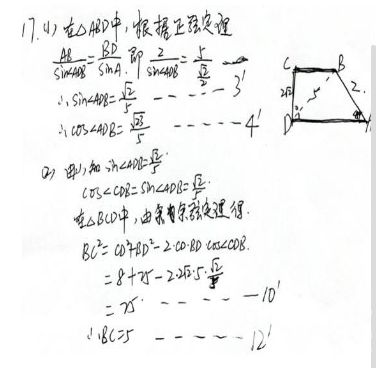 17. (1) 在△ABD中,根据正弦定理
AB/sin∠ADB = BD/sinA. 即 2/sin∠ADB = 5/(√2/2)
∴ sin∠ADB = √2/5 ------ 3'
∴ cos∠ADB = √23/5 ----- 4'
C B
2√2 5 2
D A
(2) 由(1)知 sin∠ADB = √2/5.
cos∠CDB = sin∠ADB = √2/5.
在△BCD中,由余弦定理得.
BC² = CD² + BD² - 2·CD·BD cos∠CDB.
= 8 + 25 - 2·2√2·5·√2/5
= 25. ------ 10'
∴ BC = 5 ------ 12'